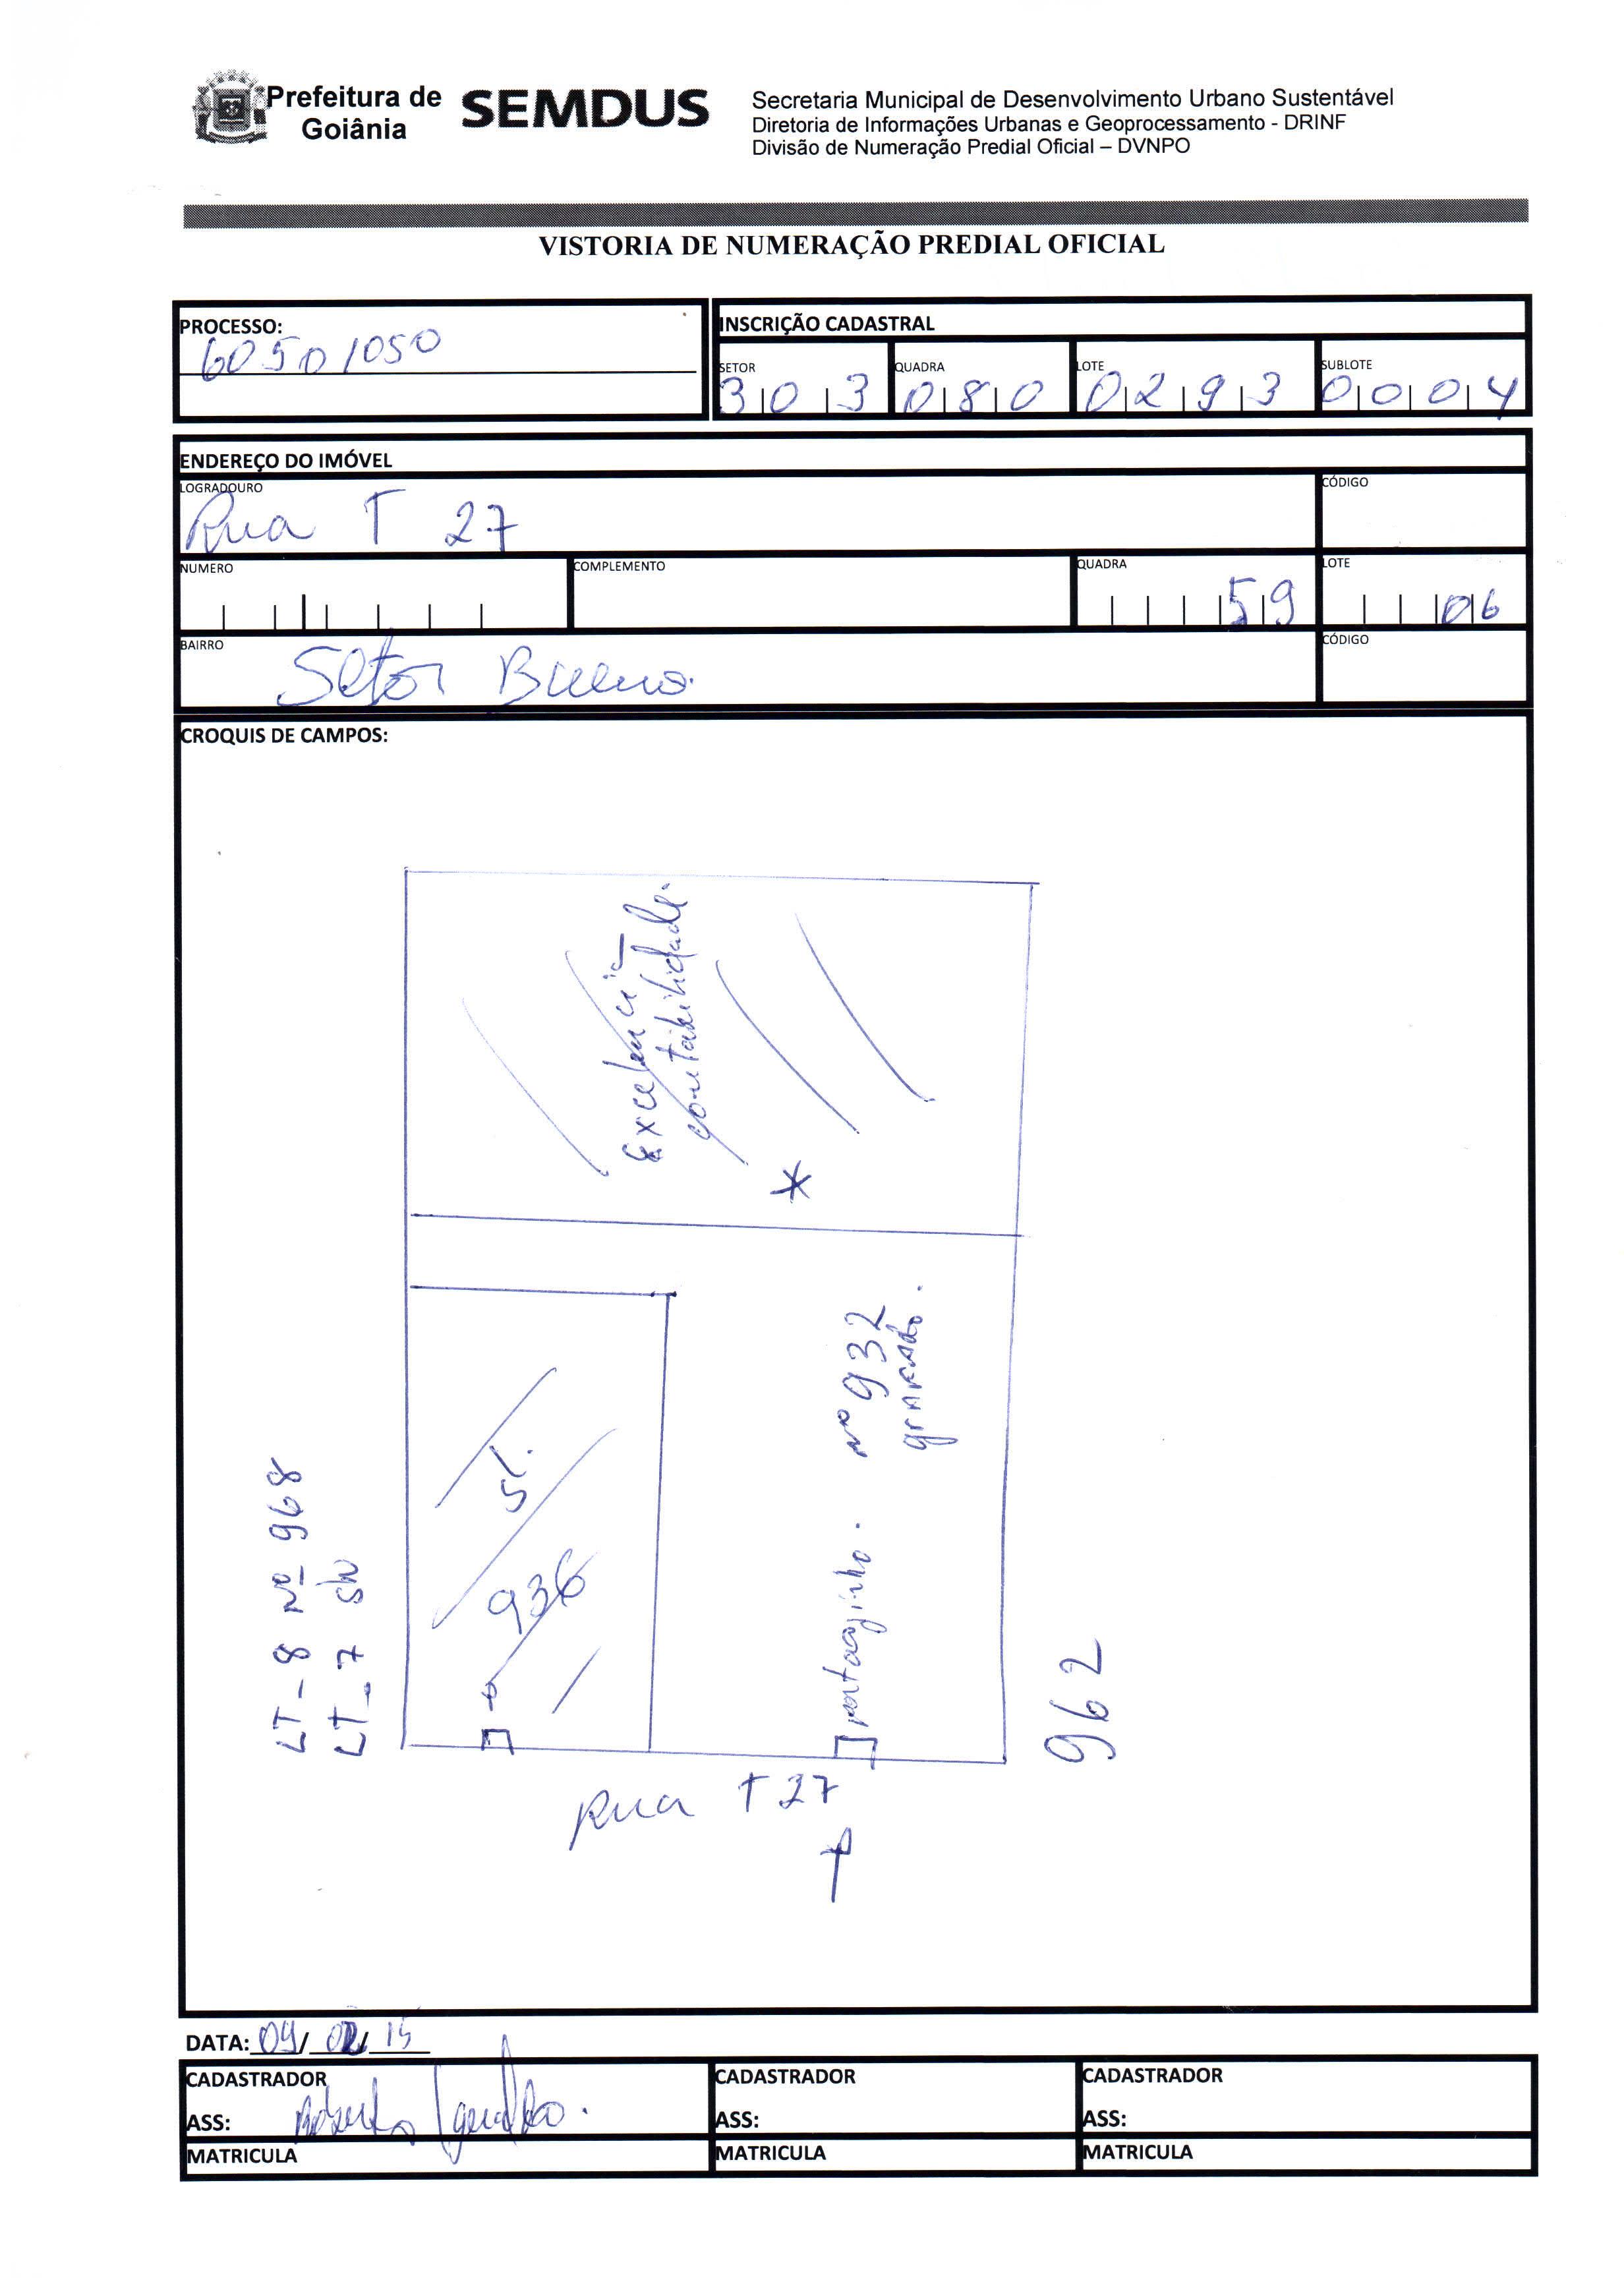 Prefeitura de Goiânia
SEMDUS
Secretaria Municipal de Desenvolvimento Urbano Sustentável
Diretoria de Informações Urbanas e Geoprocessamento - DRINF
Divisão de Numeração Predial Oficial – DVNPO
VISTORIA DE NUMERAÇÃO PREDIAL OFICIAL
PROCESSO:
60501050
INSCRIÇÃO CADASTRAL
SETOR QUADRA LOTE SUBLOTE
303 080 0293 0004
ENDEREÇO DO IMÓVEL
LOGRADOURO CÓDIGO
Rua T 27
NUMERO COMPLEMENTO QUADRA LOTE
59 06
BAIRRO CÓDIGO
Setor Bueno.
CROQUIS DE CAMPOS:
Excelencia
contabilidade.
*
nº 932
gravado.
sl.
936
portaozinho.
LT - 8 Nº 968
LT - 7
962
Rua T 27
DATA: 09/02/15
CADASTRADOR CADASTRADOR CADASTRADOR
ASS: ASS: ASS:
MATRICULA MATRICULA MATRICULA